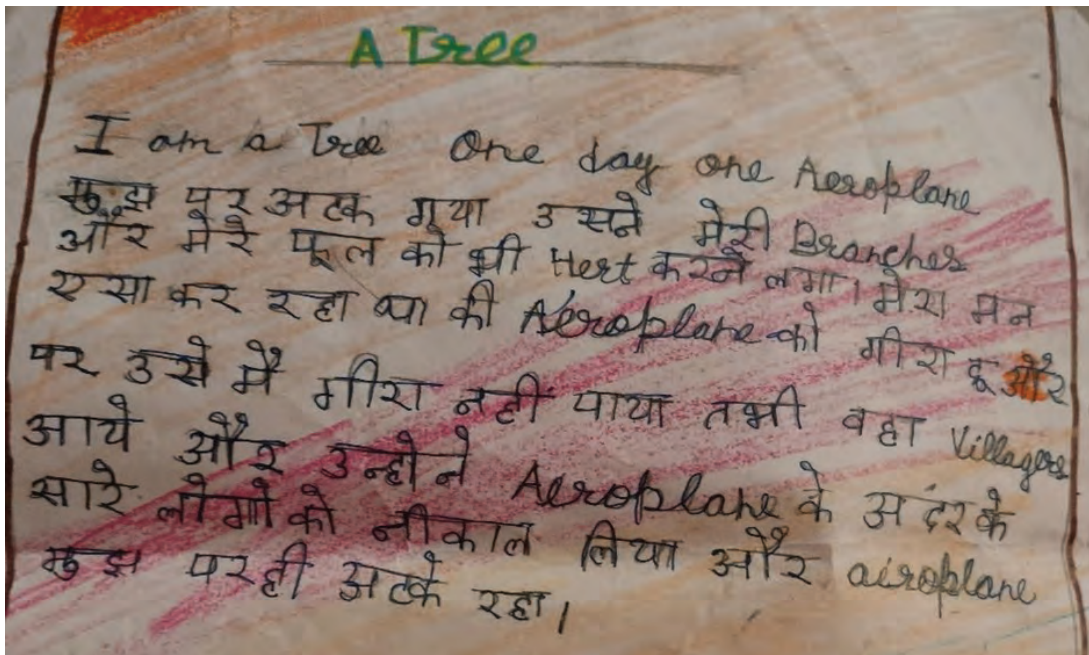 A Tree
I am a Tree One day one Aeroplane
मुझ पर अटक गया उसने मेरी Branches
और मेरे फूल को भी Hert करने लगा। मेरा मन
एसा कर रहा था की Aeroplane को गीरा दू और
पर उसे मै गीरा नहीं पाया तभी वहा Villagers
आये और उन्होने Aeroplane के अंदर के
सारे लोगो को नीकाल लिया और airoplane
मुझ पर ही अटके रहा।